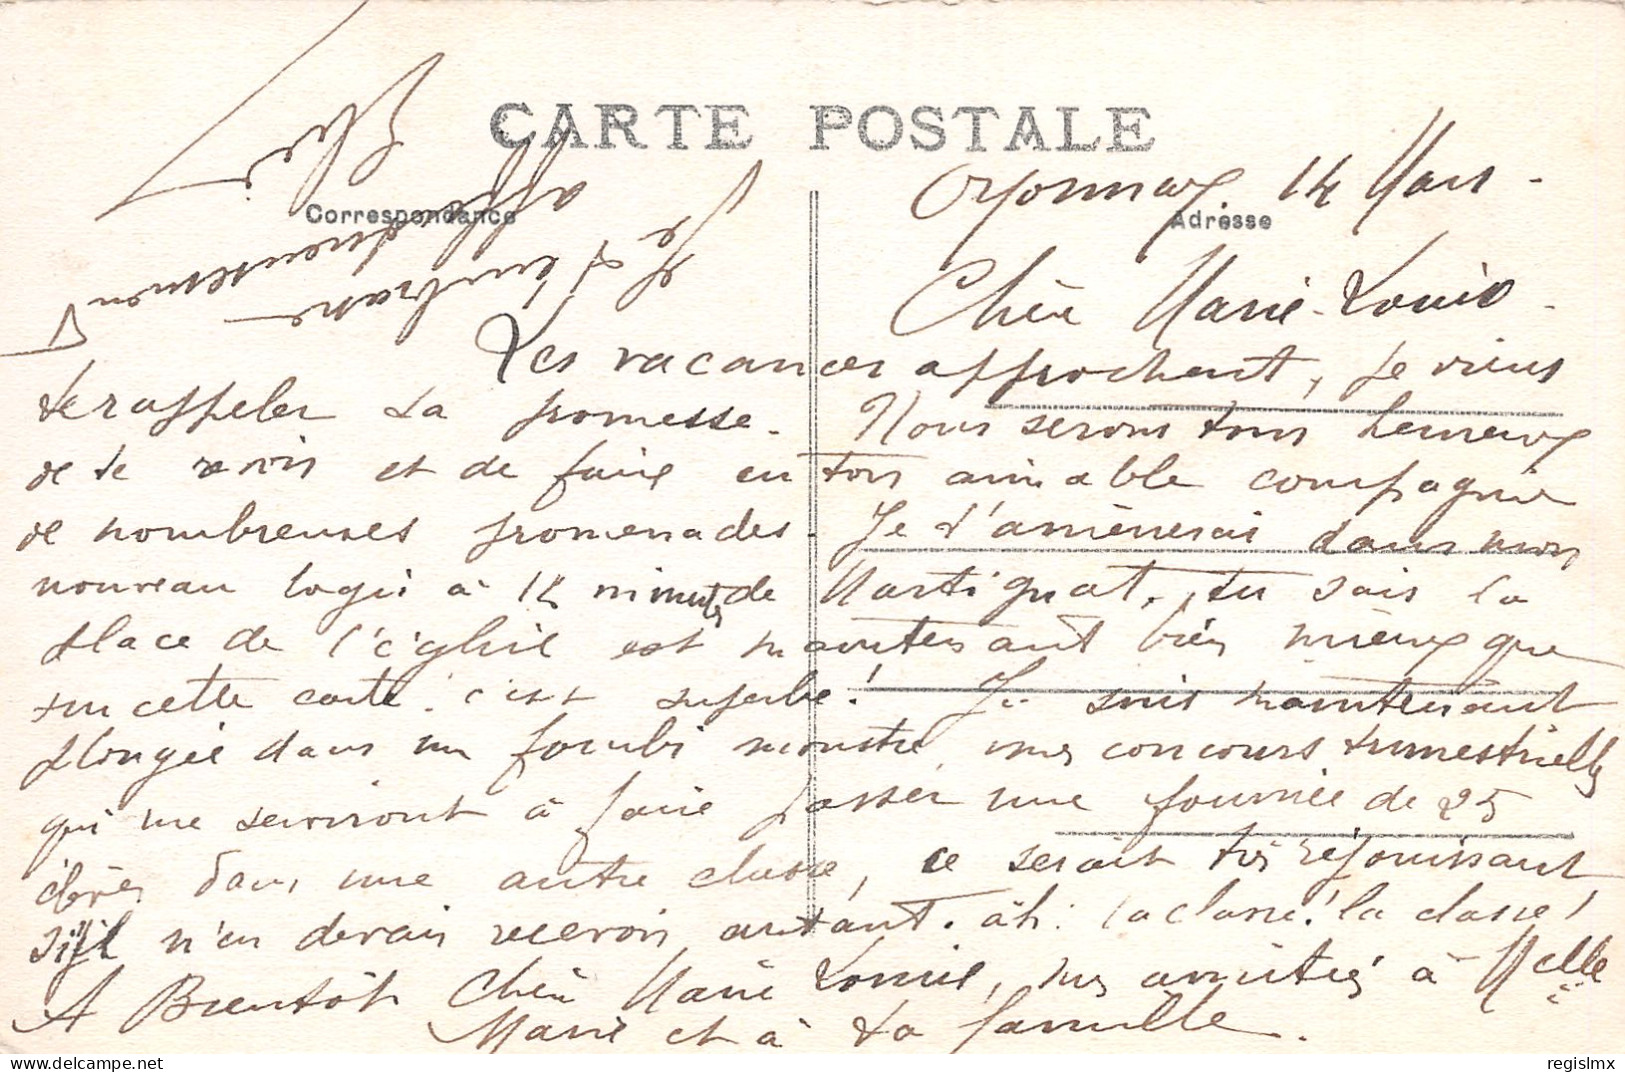 CARTE POSTALE
Correspondance
Adresse
Oyonnax 14 Mars -
Chère Marie-Louise -
Les vacances approchent, je viens
te rappeler ta promesse - Nous serons tous heureux
de te revoir et de faire en ton aimable compagnie
de nombreuses promenades. Je t'amènerai dans mon
nouveau logis à 12 minutes de Martignat, tu sais la
place de l'église est maintenant bien mieux que
sur cette carte. c'est superbe! Je suis maintenant
plongée dans un fourbi monstre, mes concours trimestriells
qui me serviront à faire passer une fournée de 25
élèves dans une autre classe, ce serait très réjouissant
s'il n'en devais recevoir autant. ah! la classe! la classe!
A Bientôt Chère Marie Louise, mes amitiés à Melle
Marie et à ta famille.
Je
Je t'embrasse
affectueusement